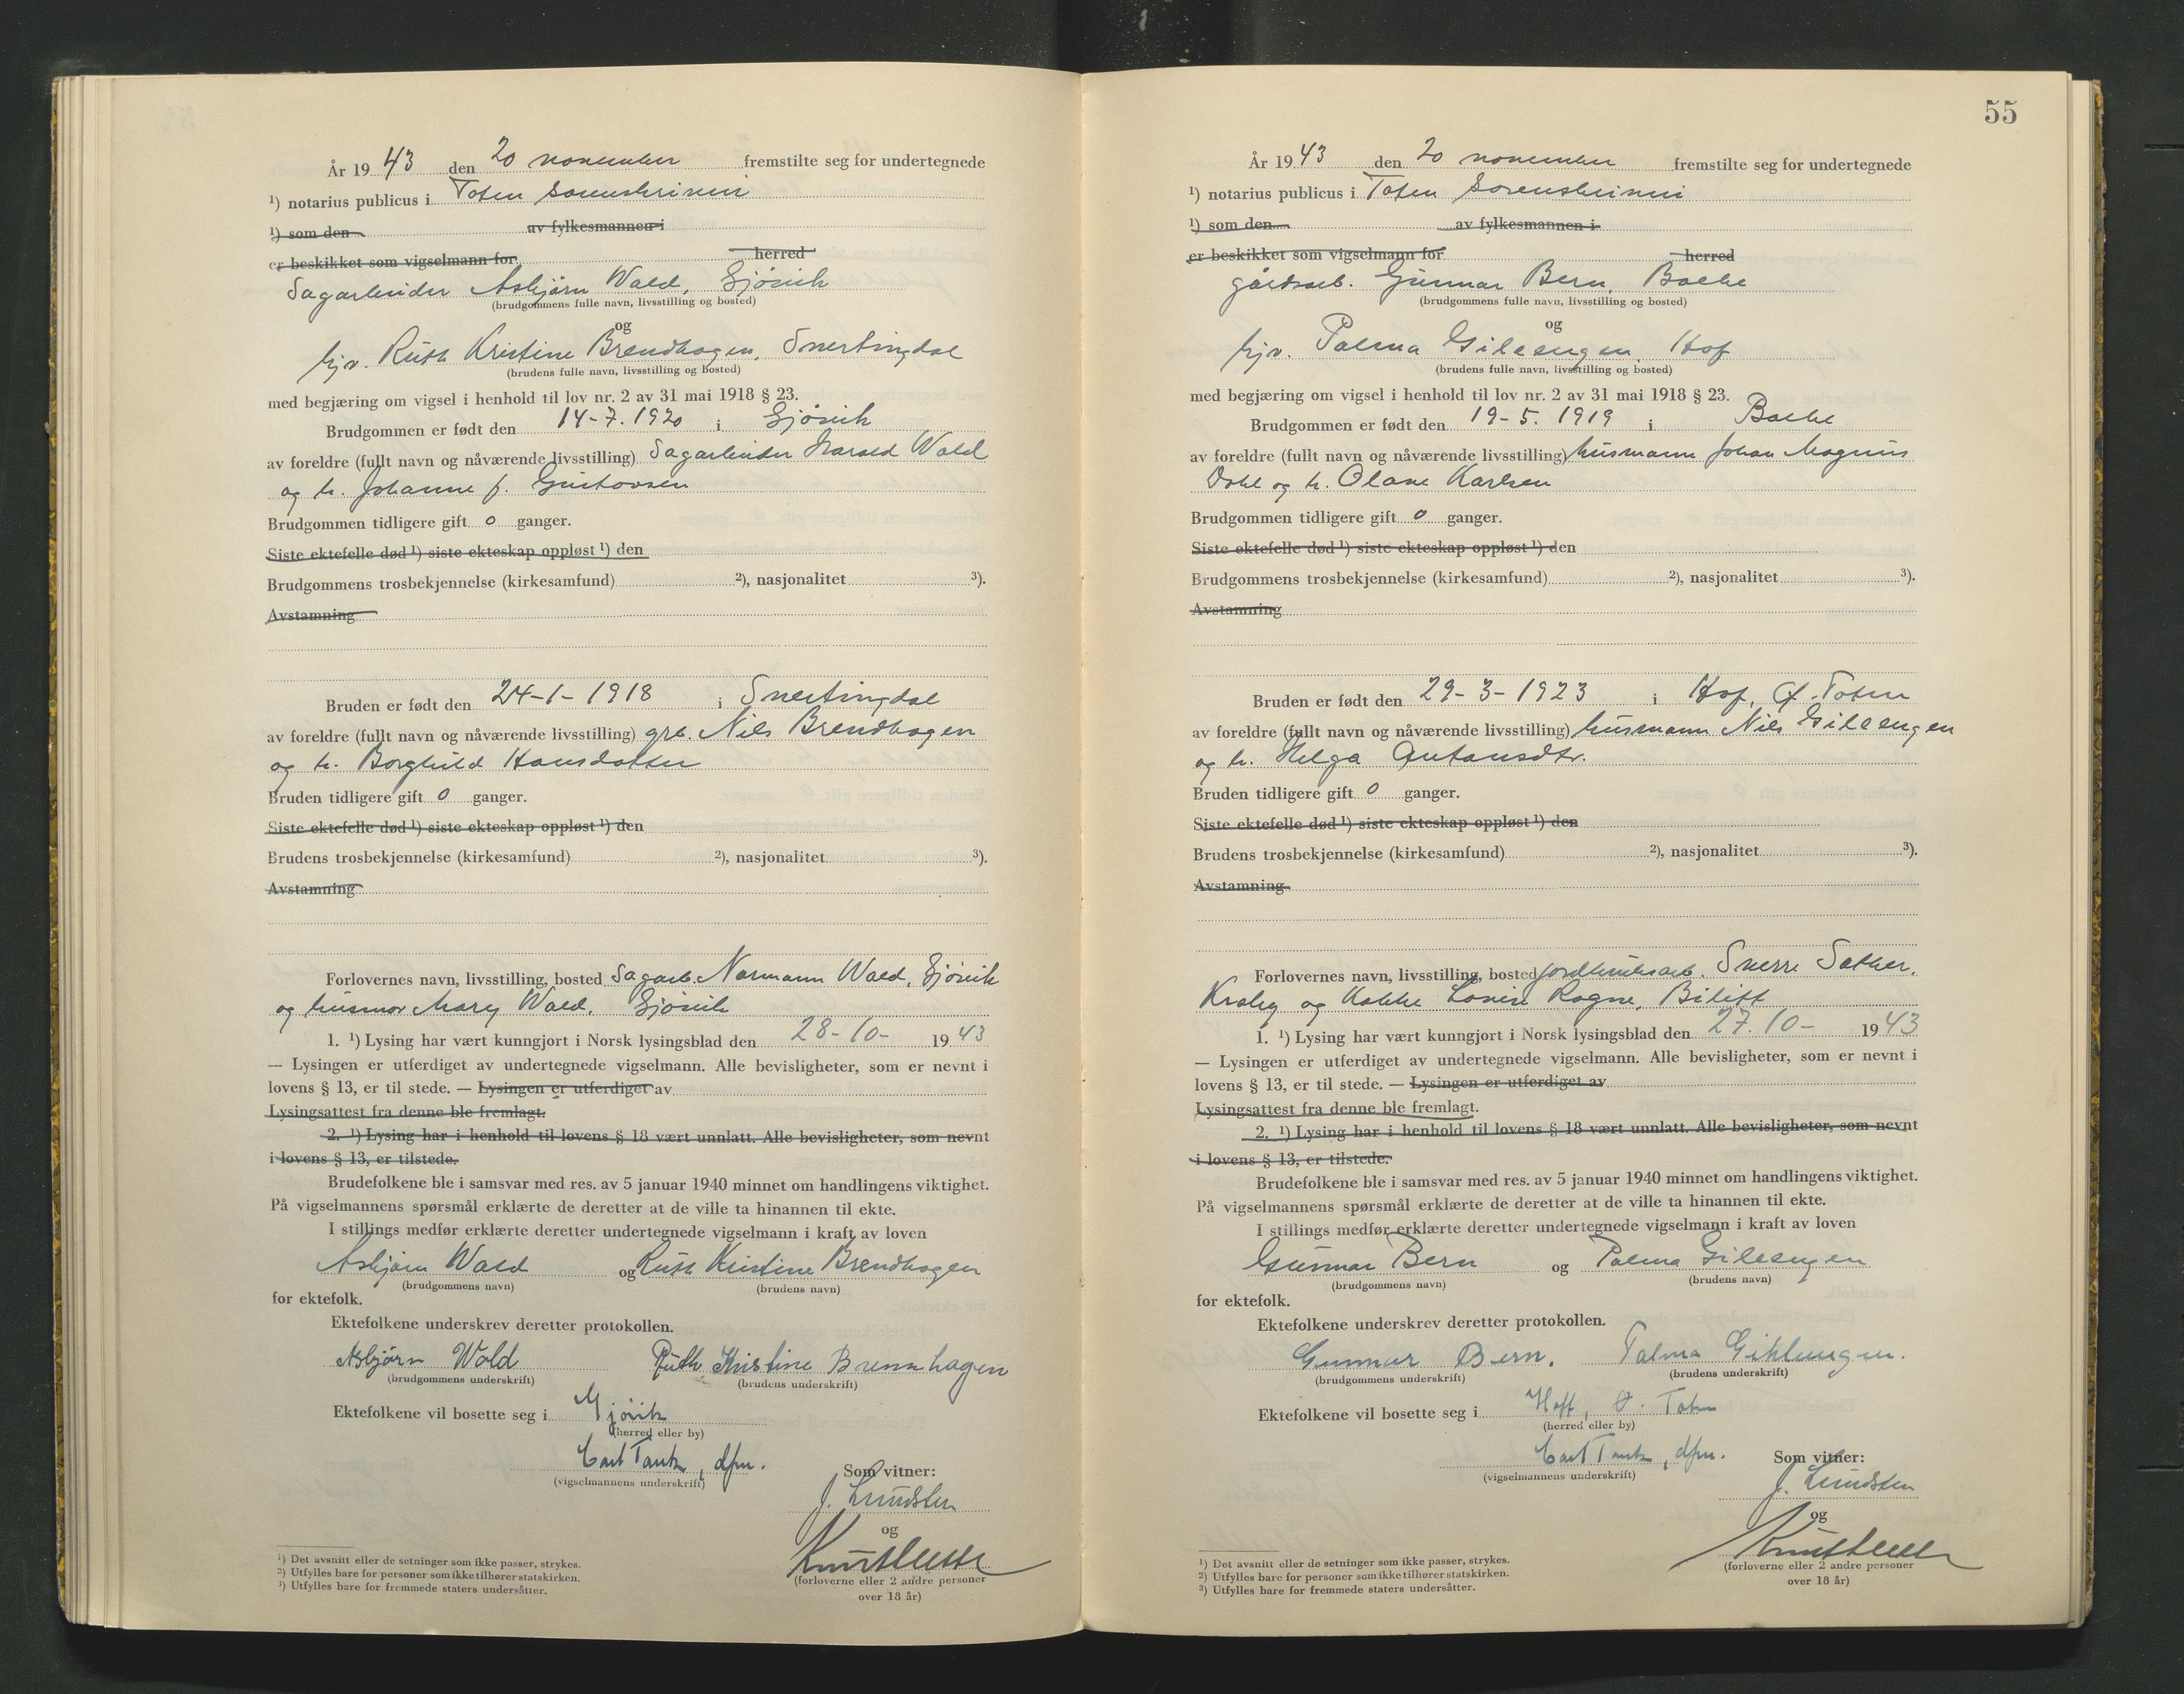 År 1943 den 20 november fremstilte seg for undertegnede
¹) notarius publicus i Toten sorenskriveri
¹) som den av fylkesmannen i
er beskikket som vigselmann for herred
Sagarbeider Asbjørn Wold, Gjøvik
(brudgommens fulle navn, livsstilling og bosted)
og
hjv. Ruth Kristine Brendhagen, Snertingdal
(brudens fulle navn, livsstilling og bosted)
med begjæring om vigsel i henhold til lov nr. 2 av 31 mai 1918 § 23.
Brudgommen er født den 14-7.1920 i Gjøvik
av foreldre (fullt navn og nåværende livsstilling) Sagarbeider Harald Wold
og h. Johanne f. Gustavsen
Brudgommen tidligere gift 0 ganger.
Siste ektefelle død ¹) siste ekteskap oppløst ¹) den
Brudgommens trosbekjennelse (kirkesamfund) ²), nasjonalitet ³).
Avstamning
Bruden er født den 24-1-1918 i Snertingdal
av foreldre (fullt navn og nåværende livsstilling) grb. Nils Brendhagen
og h. Borghild Hansdatter
Bruden tidligere gift 0 ganger.
Siste ektefelle død ¹) siste ekteskap oppløst ¹) den
Brudens trosbekjennelse (kirkesamfund) ²), nasjonalitet ³).
Avstamning
Forlovernes navn, livsstilling, bosted Sagarb. Normann Wold, Gjøvik
og husmor Mary Wold, Gjøvik
1. ¹) Lysing har vært kunngjort i Norsk lysingsblad den 28-10- 1943
— Lysingen er utferdiget av undertegnede vigselmann. Alle bevisligheter, som er nevnt i
lovens § 13, er til stede. — Lysingen er utferdiget av
Lysingsattest fra denne ble fremlagt.
2. ¹) Lysing har i henhold til lovens § 18 vært unnlatt. Alle bevisligheter, som nevnt
i lovens § 13, er tilstede.
Brudefolkene ble i samsvar med res. av 5 januar 1940 minnet om handlingens viktighet.
På vigselmannens spørsmål erklærte de deretter at de ville ta hinannen til ekte.
I stillings medfør erklærte deretter undertegnede vigselmann i kraft av loven
Asbjørn Wold og Ruth Kristine Brendhagen
(brudgommens navn) (brudens navn)
for ektefolk.
Ektefolkene underskrev deretter protokollen.
Asbjørn Wold Ruth Kristine Brennhagen
(brudgommens underskrift) (brudens underskrift)
Ektefolkene vil bosette seg i Gjøvik
(herred eller by)
Carl Tank, dfm.
(vigselmannens underskrift)
Som vitner:
J. Knudsten
og
(forloverne eller 2 andre personer
over 18 år)
¹) Det avsnitt eller de setninger som ikke passer, strykes.
²) Utfylles bare for personer som ikke tilhører statskirken.
³) Utfylles bare for fremmede staters undersåtter.
55
År 1943 den 20 november fremstilte seg for undertegnede
¹) notarius publicus i Toten Sorenskriveri
¹) som den av fylkesmannen i
er beskikket som vigselmann for herred
gårdsarb. Gunnar Bern, Balke
(brudgommens fulle navn, livsstilling og bosted)
og
hjv. Palma Gilesengen, Hof
(brudens fulle navn, livsstilling og bosted)
med begjæring om vigsel i henhold til lov nr. 2 av 31 mai 1918 § 23.
Brudgommen er født den 19-5.1919 i Balke
av foreldre (fullt navn og nåværende livsstilling) husmann Johan Magnus
Dahl og h. Olave Karlsen
Brudgommen tidligere gift 0 ganger.
Siste ektefelle død ¹) siste ekteskap oppløst ¹) den
Brudgommens trosbekjennelse (kirkesamfund) ²), nasjonalitet ³).
Avstamning
Bruden er født den 29-3-1923 i Hof, Ø. Toten
av foreldre (fullt navn og nåværende livsstilling) husmann Nils Gilesengen
og h. Helga Antonsdtr.
Bruden tidligere gift 0 ganger.
Siste ektefelle død ¹) siste ekteskap oppløst ¹) den
Brudens trosbekjennelse (kirkesamfund) ²), nasjonalitet ³).
Avstamning
Forlovernes navn, livsstilling, bosted jordbruksarb. Sverre Sæther,
Kraby og kokke Lovise Rogne, Bilitt
1. ¹) Lysing har vært kunngjort i Norsk lysingsblad den 27.10- 1943
— Lysingen er utferdiget av undertegnede vigselmann. Alle bevisligheter, som er nevnt i
lovens § 13, er til stede. — Lysingen er utferdiget av
Lysingsattest fra denne ble fremlagt.
2. ¹) Lysing har i henhold til lovens § 18 vært unnlatt. Alle bevisligheter, som nevnt
i lovens § 13, er tilstede.
Brudefolkene ble i samsvar med res. av 5 januar 1940 minnet om handlingens viktighet.
På vigselmannens spørsmål erklærte de deretter at de ville ta hinannen til ekte.
I stillings medfør erklærte deretter undertegnede vigselmann i kraft av loven
Gunnar Bern og Palma Gilesengen
(brudgommens navn) (brudens navn)
for ektefolk.
Ektefolkene underskrev deretter protokollen.
Gunnar Bern. Palma
(brudgommens underskrift) (brudens underskrift)
Ektefolkene vil bosette seg i Hoff, Ø. Toten
(herred eller by)
Carl Tank, dfm.
(vigselmannens underskrift)
Som vitner:
J. Knudsten
og
(forloverne eller 2 andre personer
over 18 år)
¹) Det avsnitt eller de setninger som ikke passer, strykes.
²) Utfylles bare for personer som ikke tilhører statskirken.
³) Utfylles bare for fremmede staters undersåtter.